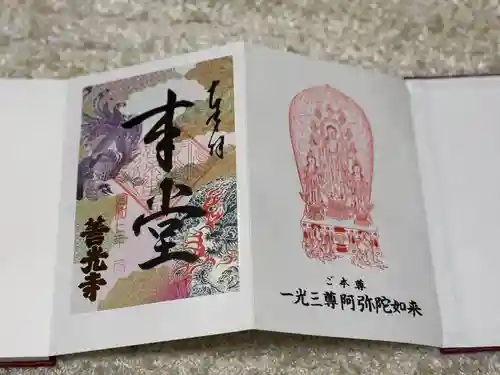 奉拝
本堂
善光寺
ご本尊
一光三尊阿弥陀如来